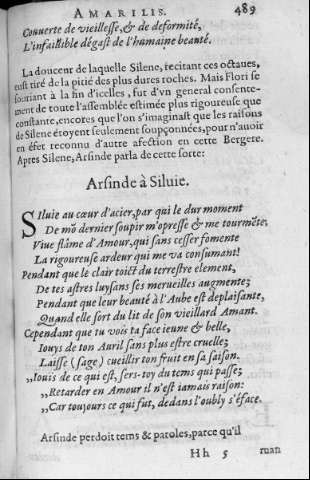 AMARILIS. 489
Couuerte de vieillesse, & de deformité,
L'infaillible dégast de l'humaine beauté.
La douceur de laquelle Silene, recitant ces octaues,
eust tiré de la pitié des plus dures roches. Mais Flori se
souriant à la fin d'icelles, fut d'vn general consente-
ment de toute l'assemblée estimée plus rigoureuse que
constante, encores que l'on s'imaginast que les raisons
de Silene étoyent seulement soupçonnées, pour n'auoir
en éfet reconnu d'autre afection en cette Bergere.
Apres Silene, Arsinde parla de cette sorte:
Arsinde à Siluie.
Siluie au cœur d'acier, par qui le dur moment
De mõ dernier soupir m'opresse & me tourmẽte,
Viue flâme d'Amour, qui sans cesser fomente
La rigoureuse ardeur qui me va consumant!
Pendant que le clair toict du terrestre element,
De tes astres luysans ses merueilles augmente;
Pendant que leur beauté à l'Aube est deplaisante,
Quand elle sort du lit de son vieillard Amant.
Cependant que tu vois ta face ieune & belle,
Iouys de ton Auril sans plus estre cruelle;
Laisse (sage) cueillir ton fruit en sa saison.
„Iouis de ce qui est, sers-toy du tems qui passe;
„Retarder en Amour il n'est iamais raison:
„Car tousjours ce qui fut, dedans l'oubly s'éface.
Arsinde perdoit tems & paroles, parce qu'il
Hh 5 ruan